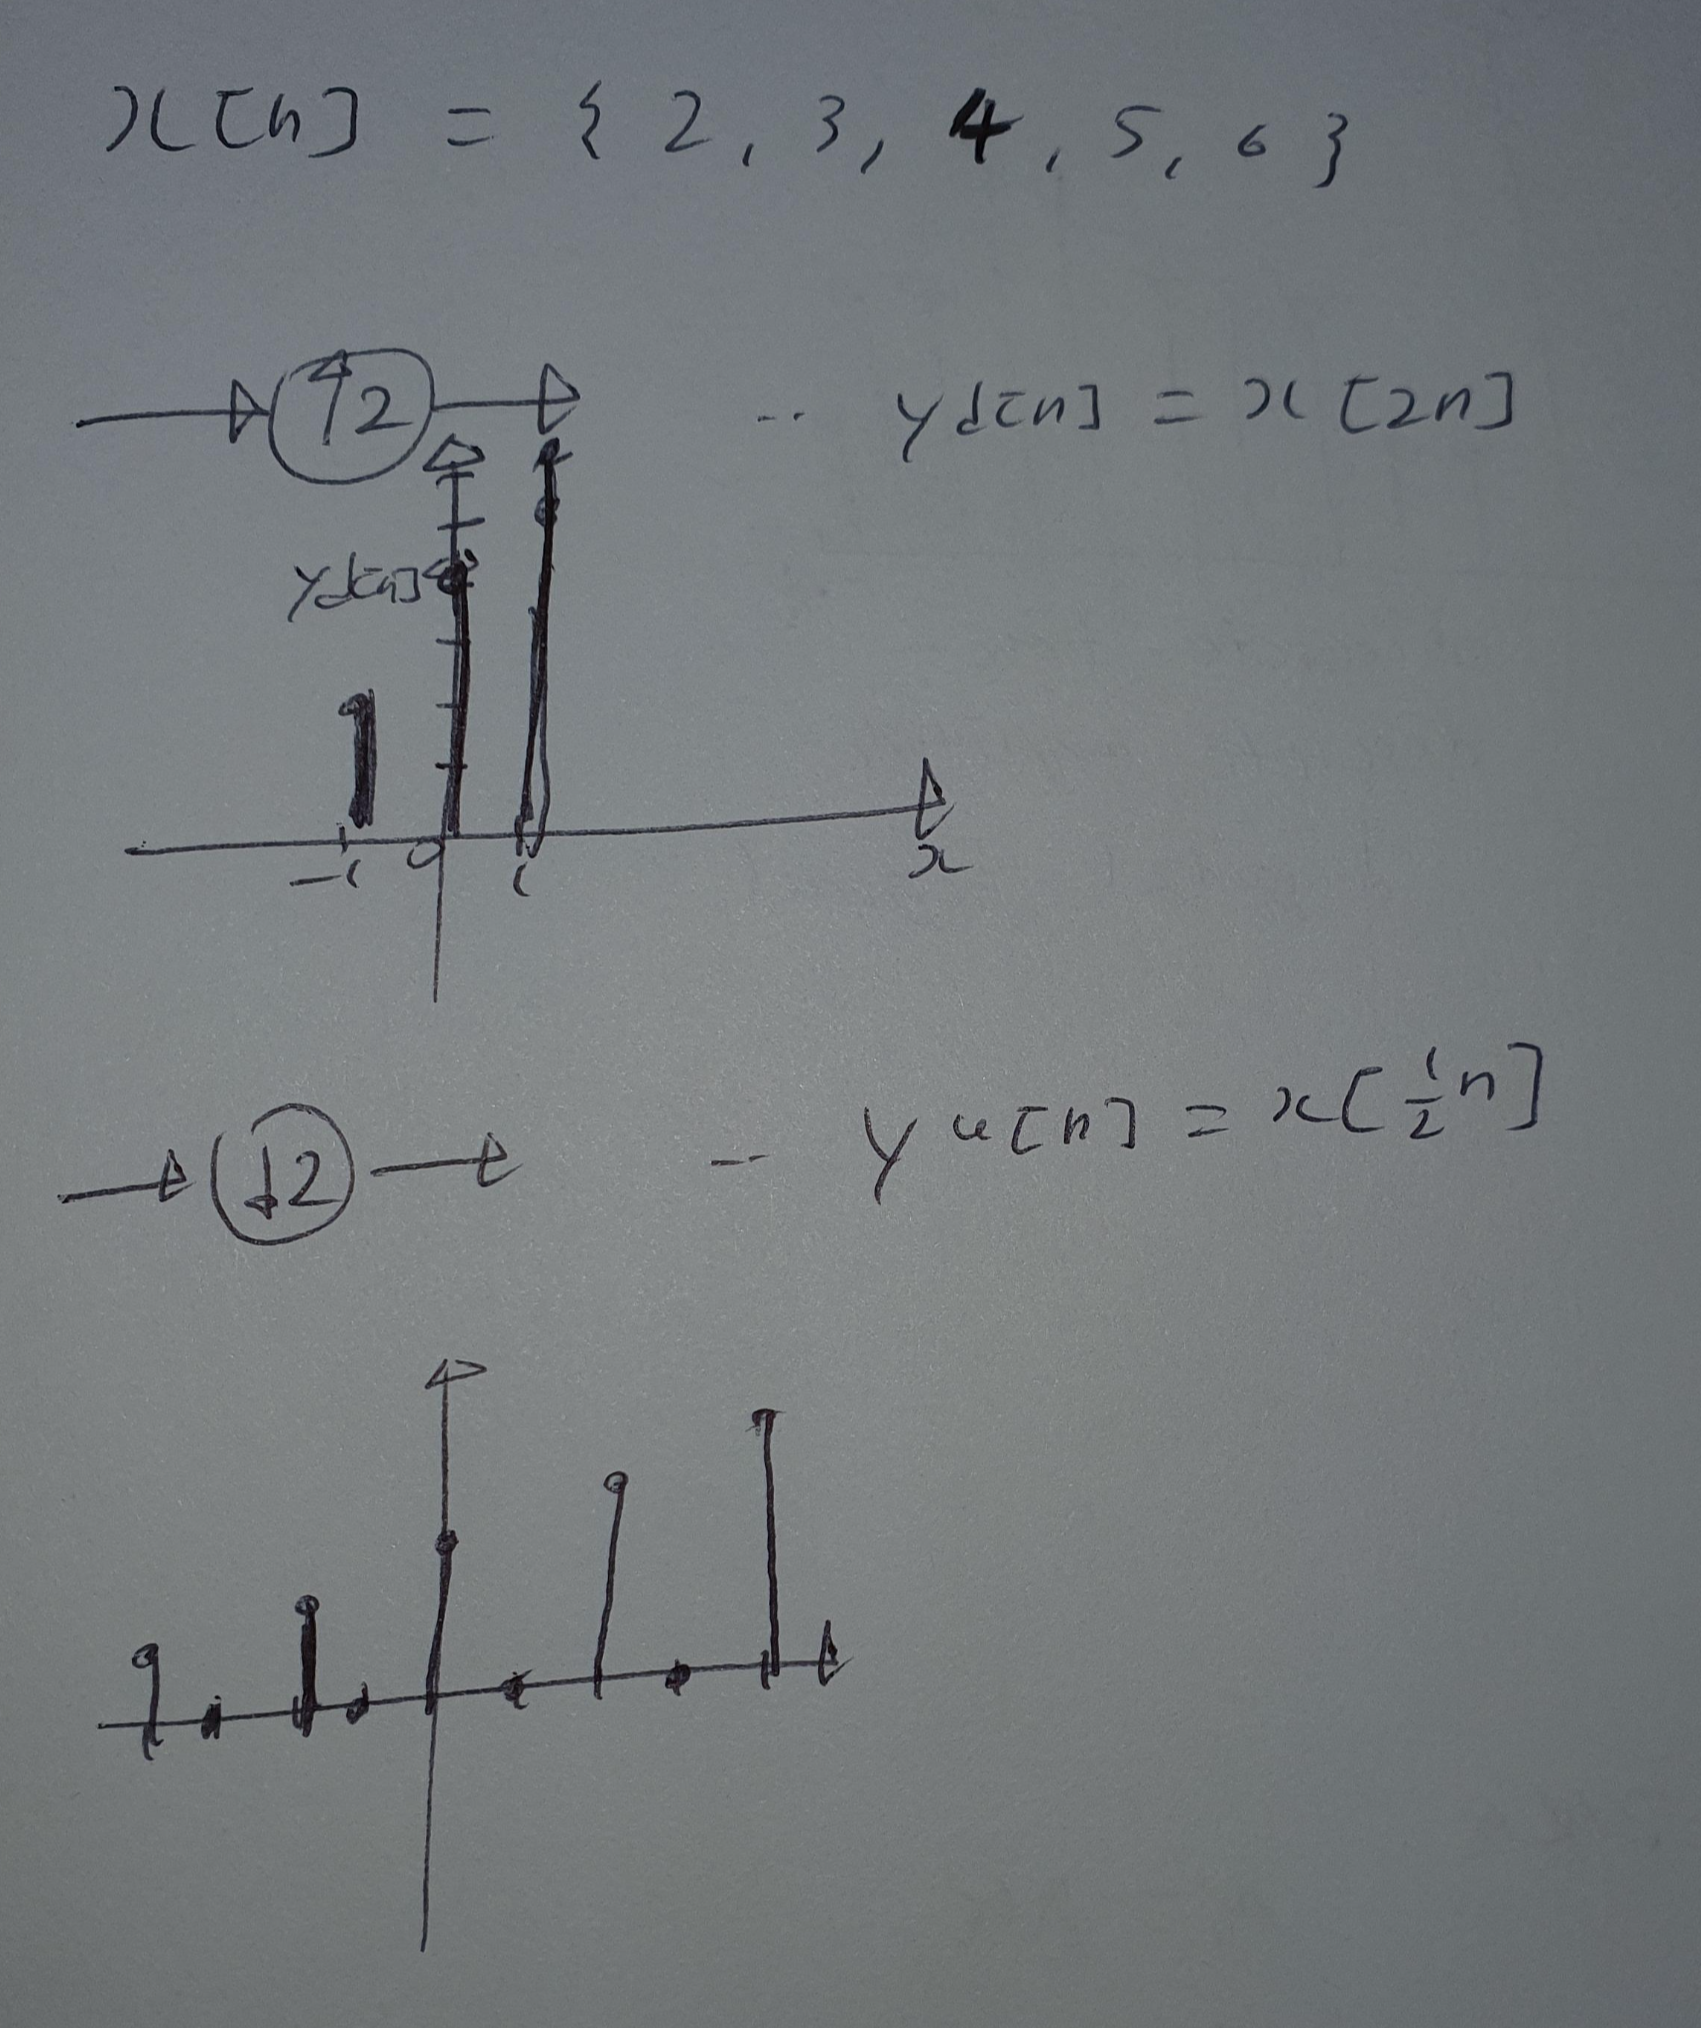 x[n] = { 2, 3, 4, 5, 6 }
↑2 -- yd[n] = x[2n]
yd[n]
-1 0 1 x
↓2 -- yu[n] = x[1/2 n]